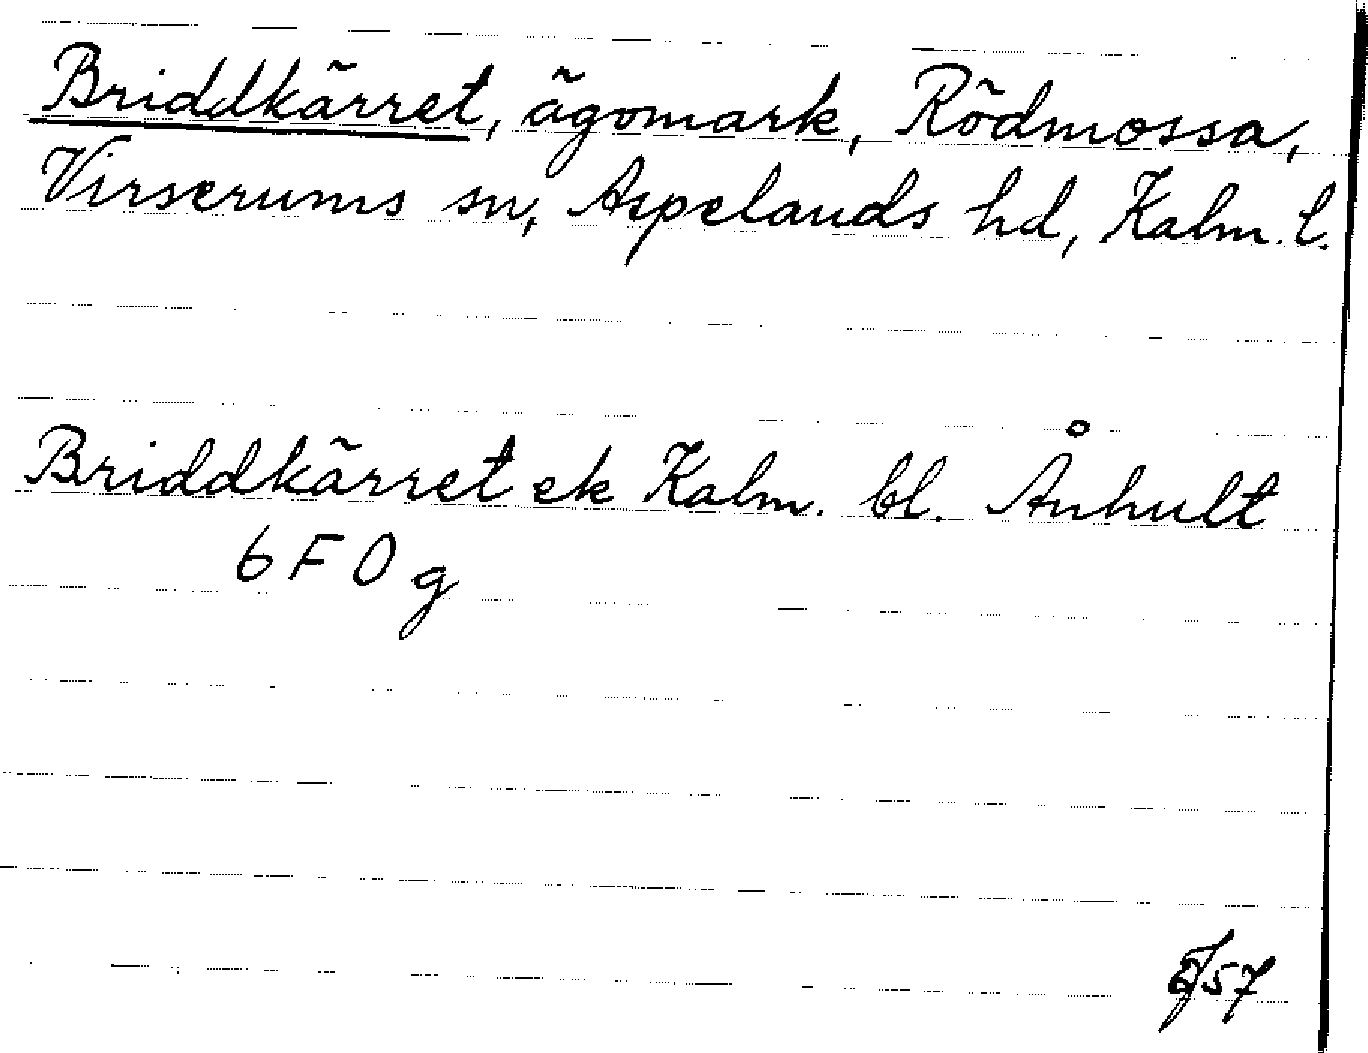 Briddkärret, ägomark, Rödmossa,
Virserums sn, Aspelands hd, Kalm. l.
Briddkärret ek Kalm. bl. Ånhult
6 F 0 g
57